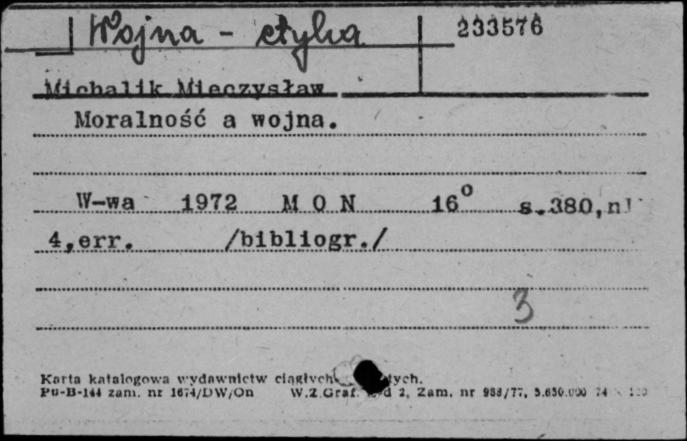 Wojna - etyka 233576
Michalik Mieczysław
Moralność a wojna.
W-wa 1972 M O N 16° s.380,nl
4,err. /bibliogr./
3
Karta katalogowa wydawnictw ciągłych
Pu-B-144 zam. nr 1674/DW/On W.Z.Graf. 2, Zam. nr 988/77, 5.650.000 74